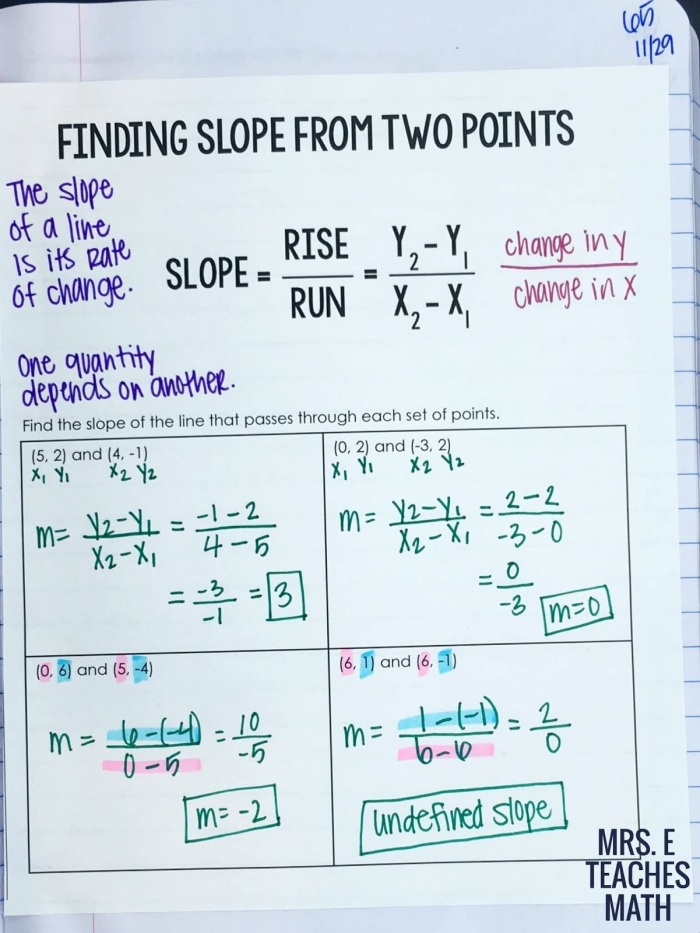 65
11/29
FINDING SLOPE FROM TWO POINTS
The slope
of a line
Is its Rate
of change.
SLOPE = RISE / RUN = Y₂ - Y₁ / X₂ - X₁ change in y / change in x
One quantity
depends on another.
Find the slope of the line that passes through each set of points.
(5, 2) and (4, -1)
X₁ Y₁ X₂ Y₂
m = Y₂-Y₁ / X₂-X₁ = -1-2 / 4-5
= -3 / -1 = 3
(0, 2) and (-3, 2)
X₁ Y₁ X₂ Y₂
m = Y₂-Y₁ / X₂-X₁ = 2-2 / -3-0
= 0 / -3
m=0
(0, 6) and (5, -4)
m = 6-(-4) / 0-5 = 10 / -5
m= -2
(6, 1) and (6, -1)
m = 1-(-1) / 6-6 = 2 / 0
undefined slope
MRS. E
TEACHES
MATH